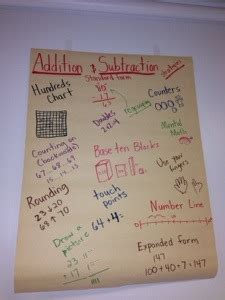 Addition & Subtraction
Strategies
Standard form
Hundreds
Chart
regrouping
Counters
Doubles
2+2=4
Mental
Math
Counting on
(backwards)
67-68-69
15-14-13
Base ten Blocks
Use your
fingers
Rounding
23↓20
68↑70
touch
points
64+4=
Number Line
Draw a
picture
23
+17
Expanded form
147
100+40+7=147